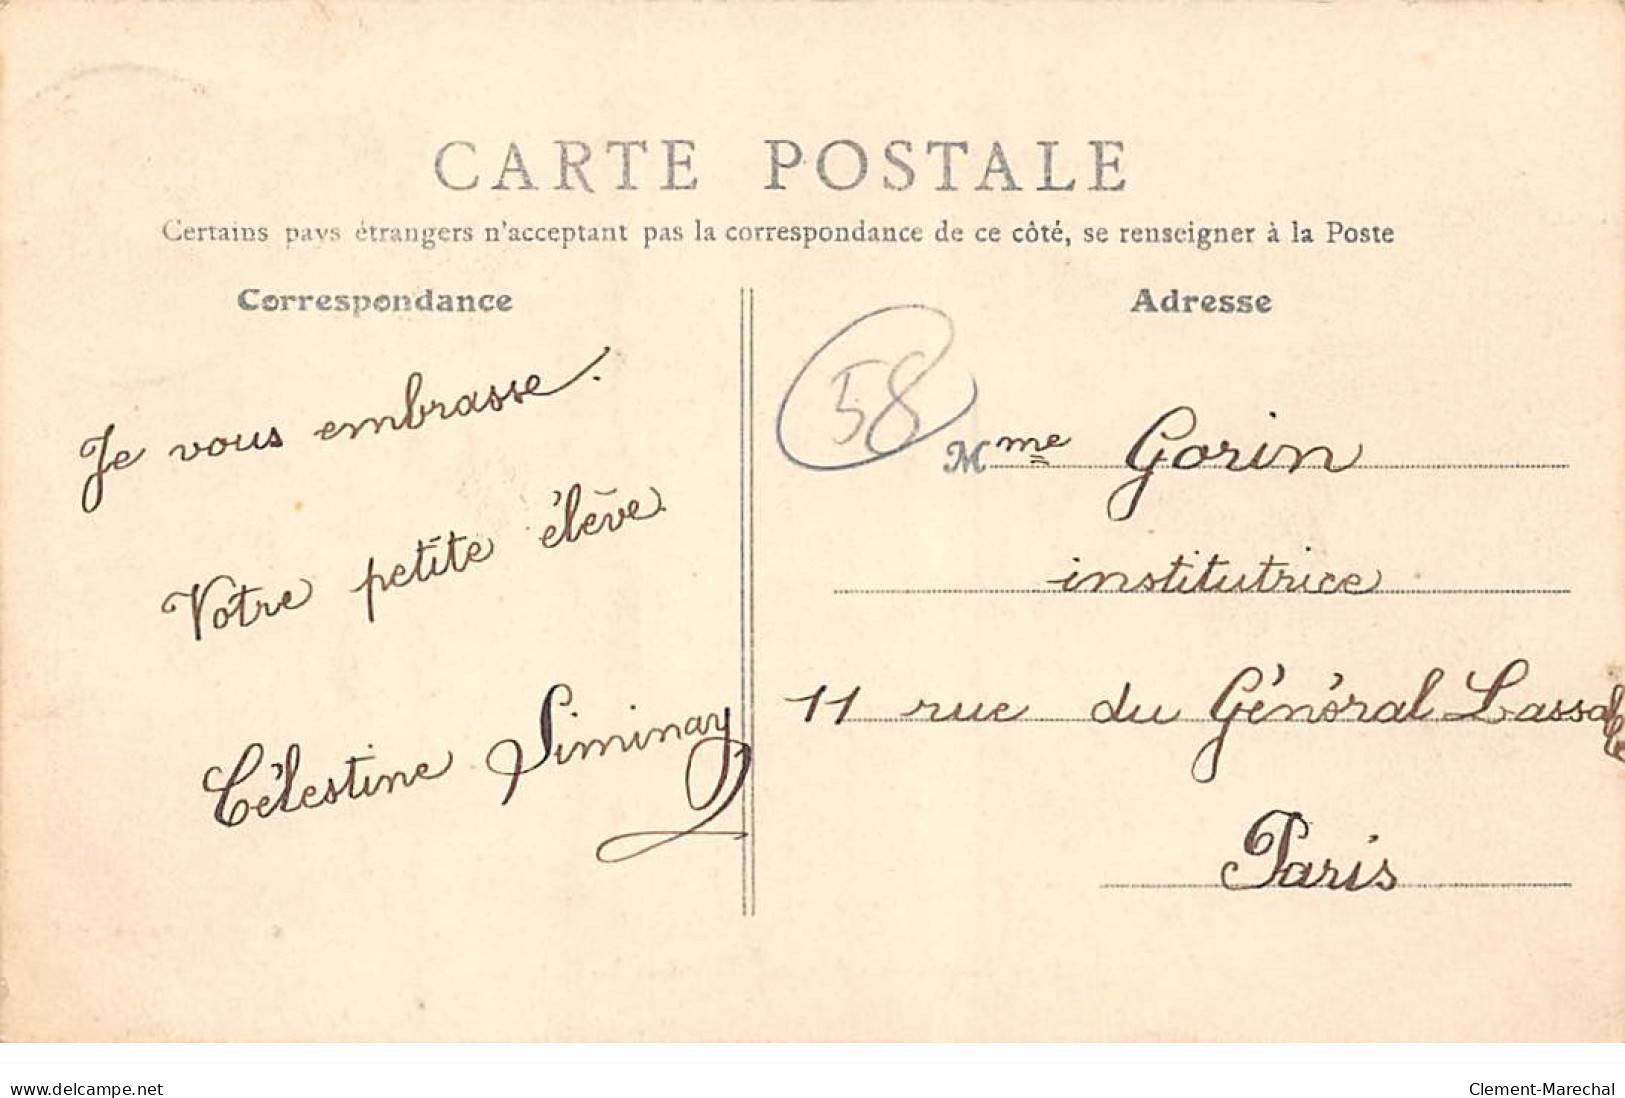 CARTE POSTALE
Certains pays étrangers n'acceptant pas la correspondance de ce côté, se renseigner à la Poste
Correspondance
Je vous embrasse.
Votre petite élève
Célestine Siminay
Adresse
58
Mme Gorin
institutrice
11 rue du Général Lassalle
Paris
www.delcampe.net
Clement-Marechal